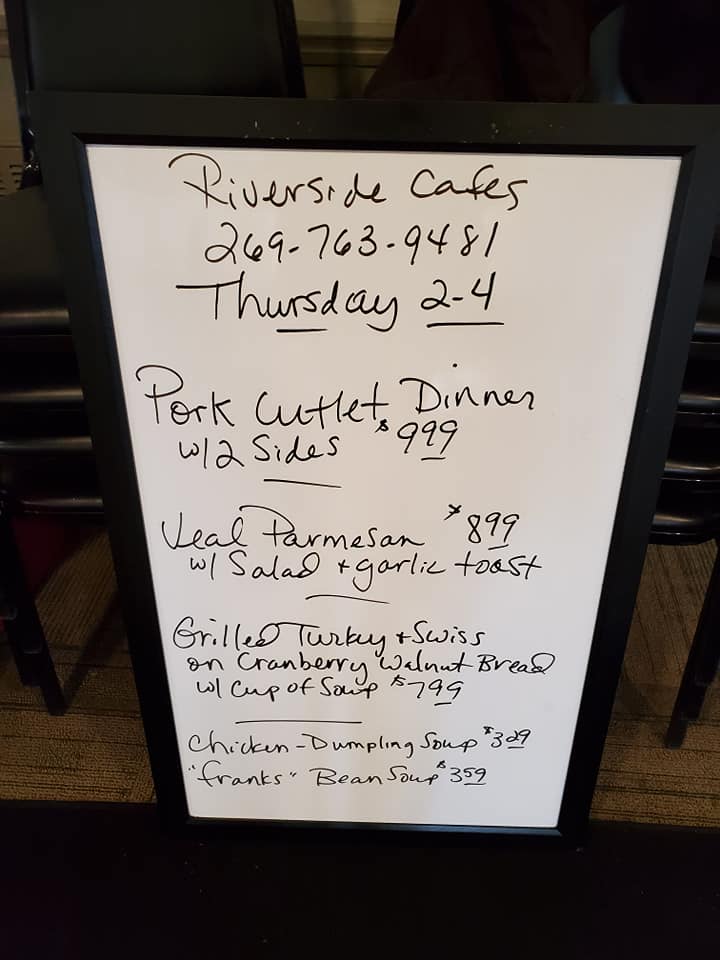 Riverside Cafes
269-763-9481
Thursday 2-4
Pork Cutlet Dinner
w/2 Sides $999
Veal Parmesan $899
w/ Salad + garlic toast
Grilled Turkey + Swiss
on Cranberry Walnut Bread
w/ Cup of Soup $799
Chicken-Dumpling Soup $329
"franks" Bean Soup $359